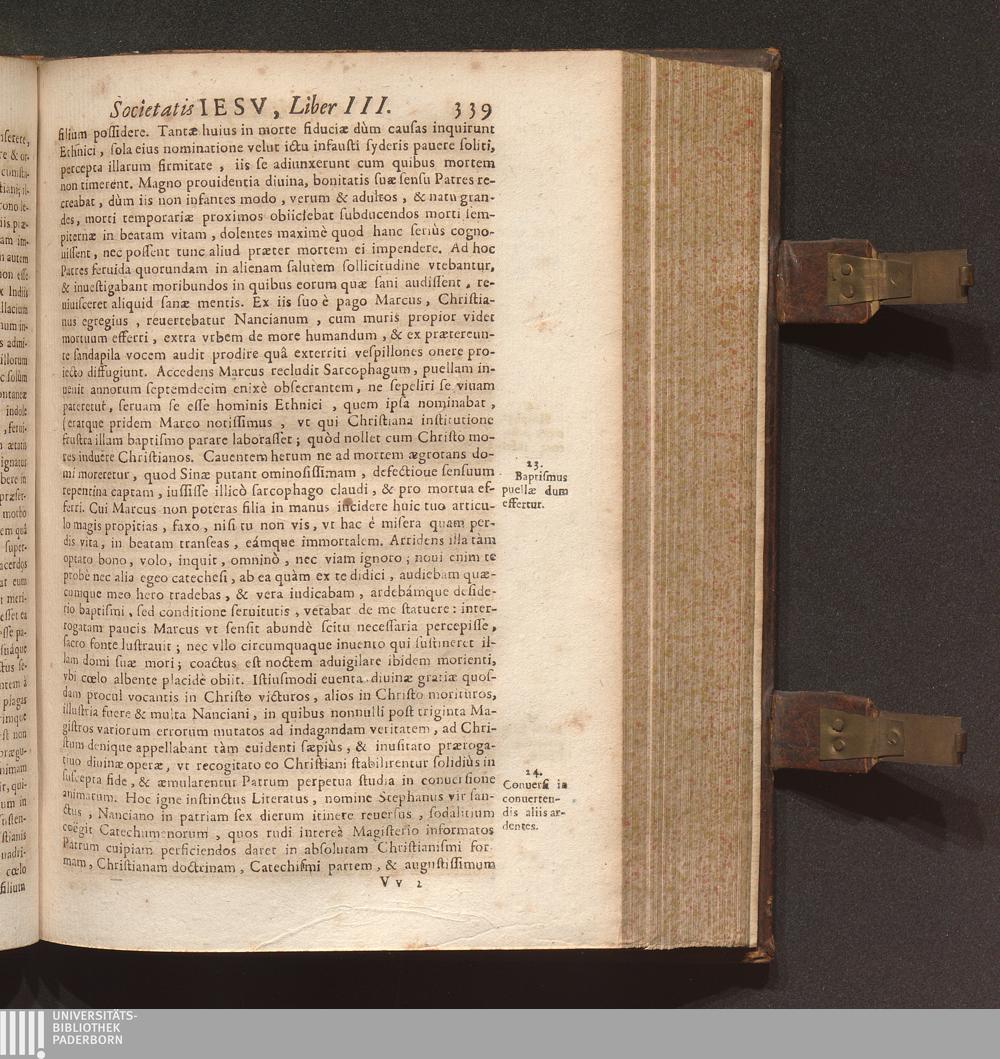 Societatis IESV, Liber III. 339
filium poſſidere. Tantæ huius in morte fiduciæ dùm cauſas inquirunt
Ethnici, ſola eius nominatione velut ictu infauſti ſyderis pauere ſoliti,
percepta illarum firmitate, iis ſe adiunxerunt cum quibus mortem
non timerent. Magno prouidentia diuina, bonitatis ſuæ ſenſu Patres re-
creabat, dùm iis non infantes modo, verum & adultos, & natu gran-
des, morti temporariæ proximos obiiciebat ſubducendos morti ſem-
piternæ in beatam vitam, dolentes maximè quod hanc ſeriùs cogno-
uiſſent, nec poſſent tunc aliud præter mortem ei impendere. Ad hoc
Patres feruida quorundam in alienam ſalutem ſollicitudine vtebantur,
& inueſtigabant moribundos in quibus eorum quæ ſani audiſſent, re-
uiuiſceret aliquid ſanæ mentis. Ex iis ſuo è pago Marcus, Chriſtia-
nus egregius, reuertebatur Nancianum, cum muris propior videt
mortuum efferri, extra vrbem de more humandum, & ex prætereun-
te ſandapila vocem audit prodire quâ exterriti veſpillones onere pro-
iecto diffugiunt. Accedens Marcus recludit Sarcophagum, puellam in-
uenit annorum ſeptemdecim enixè obſecrantem, ne ſepeliri ſe viuam
pateretur, ſeruam ſe eſſe hominis Ethnici, quem ipſa nominabat,
ſeratque pridem Marco notiſſimus, vt qui Chriſtiana inſtitutione
fruſtra illam baptiſmo parare laboraſſet; quòd nollet cum Chriſto mo-
res induere Chriſtianos. Cauentem herum ne ad mortem ægrotans do-
mi moreretur, quod Sinæ putant ominoſiſſimam, defectioue ſenſuum
repentina captam, iuſſiſſe illicò ſarcophago claudi, & pro mortua ef-
ferri. Cui Marcus non poteras filia in manus incidere huic tuo articu-
lo magis propitias, faxo, niſi tu non vis, vt hac é miſera quam per-
dis vita, in beatam tranſeas, eámque immortalem. Arridens illa tàm
optato bono, volo, inquit, omninò, nec viam ignoro; noui enim te
probè nec alia egeo catecheſi, ab ea quàm ex te didici, audiebam quæ-
cumque meo hero tradebas, & vera iudicabam, ardebámque deſide-
rio baptiſmi, ſed conditione ſeruitutis, vetabar de me ſtatuere: inter-
rogatam paucis Marcus vt ſenſit abundè ſcitu neceſſaria percepiſſe,
ſacro fonte luſtrauit; nec vllo circumquaque inuento qui ſuſtineret il-
lam domi ſuæ mori; coactus eſt noctem aduigilare ibidem morienti,
vbi cœlo albente placidè obiit. Iſtiuſmodi euenta diuinæ gratiæ quoſ-
dam procul vocantis in Chriſto victuros, alios in Chriſto morituros,
illuſtria fuere & multa Nanciani, in quibus nonnulli poſt triginta Ma-
giſtros variorum errorum mutatos ad indagandam veritatem, ad Chri-
ſtum denique appellabant tàm euidenti ſæpiùs, & inuſitato præroga-
tiuo diuinæ operæ, vt recogitato eo Chriſtiani ſtabilirentur ſolidiùs in
ſuſcepta fide, & æmularentur Patrum perpetua ſtudia in conuerſione
animarum. Hoc igne inſtinctus Literatus, nomine Stephanus vir ſan-
ctus, Nanciano in patriam ſex dierum itinere reuerſus, ſodalitium
coëgit Catechumenorum, quos rudi intereà Magiſterio informatos
Patrum cuipiam perficiendos daret in abſolutam Chriſtianiſmi for-
mam, Chriſtianam doctrinam, Catechiſmi partem, & auguſtiſſimum
Vv 2
23.
Baptiſmus
puellæ dum
effertur.
24.
Conuerſi in
conuerten-
dis aliis ar-
dentes.
UNIVERSITÄTS-
BIBLIOTHEK
PADERBORN